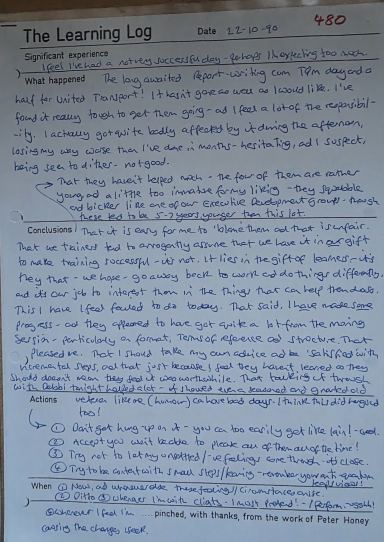 480
The Learning Log Date 22-10-90
Significant experience
I feel I've had a not very successful day - perhaps I'm expecting too much
What happened The long awaited Report-writing cum T&M day and a
half for United Transport! It hasn't gone as well as I would like. I've
found it really tough to get them going - and I feel a lot of the responsibil-
-ity. I actually got quite badly affected by it during the afternoon,
losing my way worse than I've done in months - hesitating, and I suspect,
being seen to dither - not good.
That they haven't helped much - the four of them are rather
young and a little too immature for my liking - they squabble
and bicker like one of our Executive Development groups - though
these tend to be 5-7 years younger than this lot.
Conclusions That it is easy for me to 'blame' them and that is unfair.
That we trainers tend to arrogantly assume that we have it in our gift
to make training successful - it's not. It lies in the gift of learners - it's
they that - we hope - go away back to work and do things differently,
and it's our job to interest them in the things that can help them do so.
This I have I feel failed to do today. That said, I have made some
progress - and they appeared to have got quite a lot from the morning
Session - particularly on format, Terms of reference and structure. That
pleased me. That I should take my own advice and be 'satisfied with
incremental steps, and that just because I feel they haven't learned as they
should doesn't mean they feel it was worthwhile. That talking it through
with Debbi tonight helped a lot - it showed even a seasoned and grizzled old
Actions veteran like me (humour) can have bad days. I think this did her good
too!
① Don't get hung up on it - you can too easily get like Iain! -
② Accept you won't be able to please all of them all of the time!
③ Try not to let my unsettled / -ve feelings come through - to close.
④ Try to be content with small steps/learning - remember your
When ① Now, and whenever else these feelings/circumstances arise.
② Ditto ③ Whenever I'm with clients - I must pretend! - /perform -
④ Whenever I feel I'm pinched, with thanks, from the work of Peter Honey
causing the changes I seek.